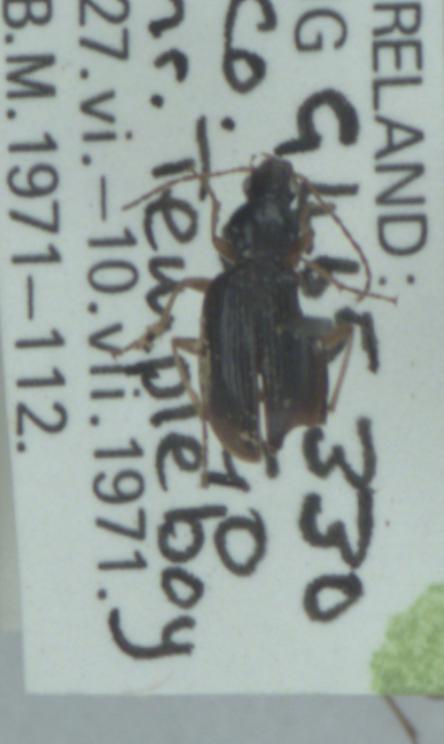 RELAND:
G 330
Co.
nr. Templeboy
27.vi.–10.vii.1971.
B.M.1971–112.